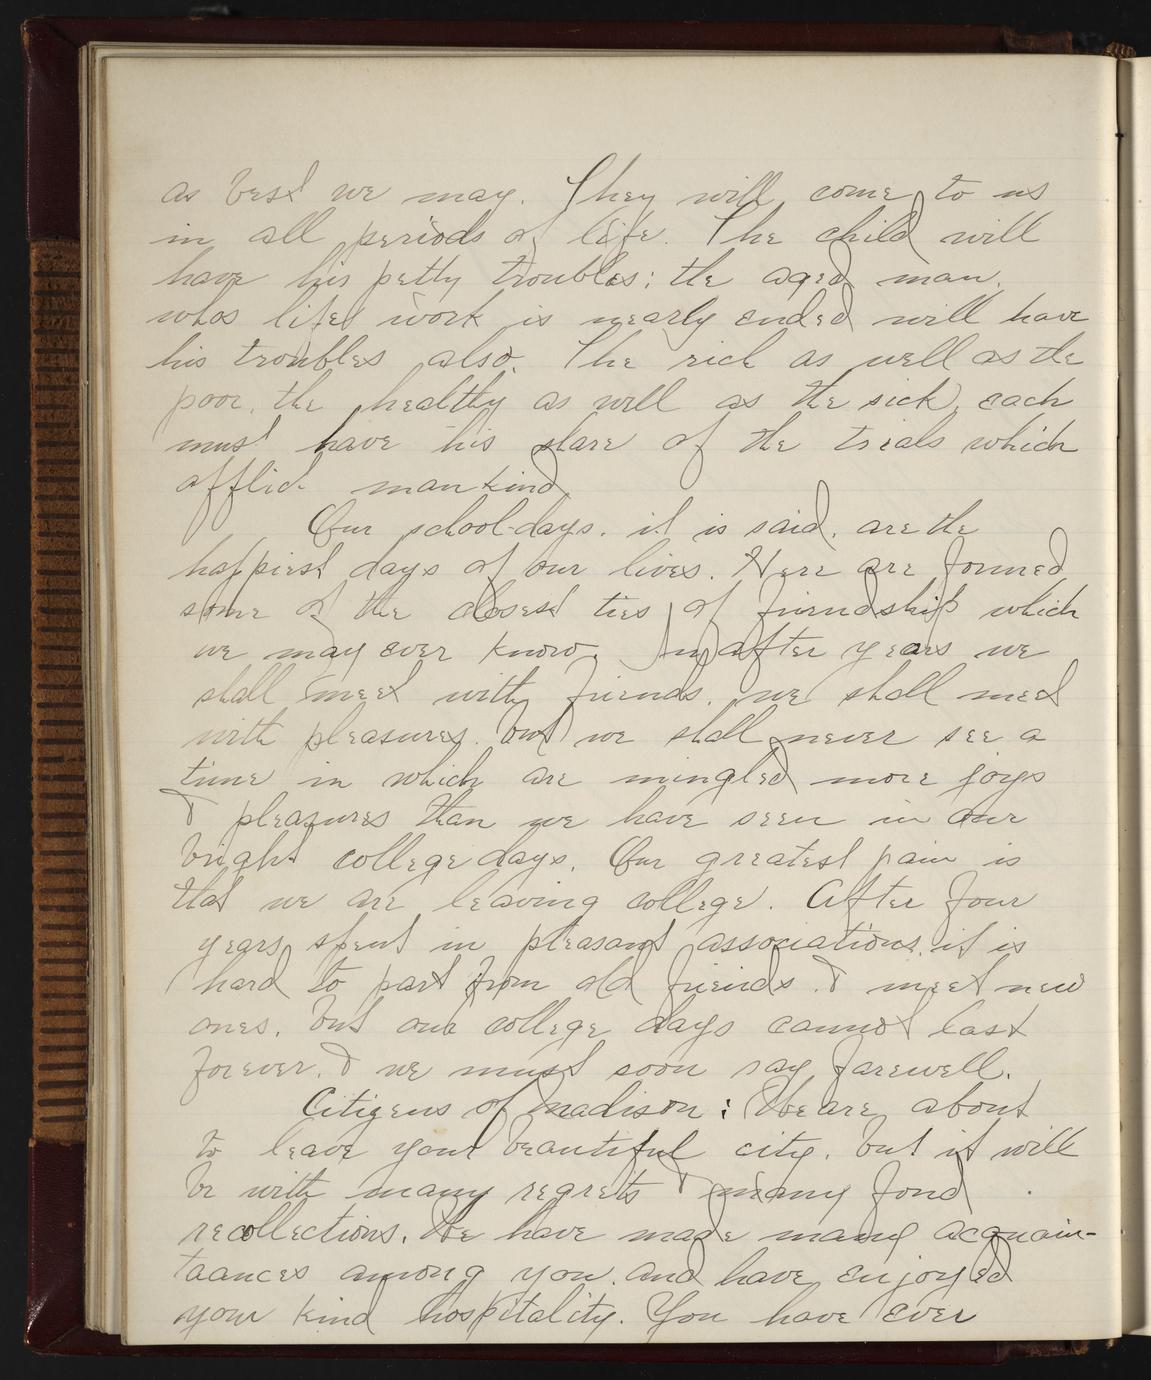 as best we may. They will come to us
in all periods of life. The child will
have his petty troubles; the aged man,
whos lifes work is nearly ended will have
his troubles also. The rich as well as the
poor, the healthy as well as the sick, each
must have his share of the trials which
afflict mankind
Our school-days, it is said, are the
happiest days of our lives. Here are formed
some of the closest ties of friendship which
we may ever know. In after years we
shall meet with friends, we shall meet
with pleasures, but we shall never see a
time in which are mingled more joys
& pleasures than we have seen in our
bright college days. Our greatest pain is
that we are leaving college. After four
years spent in pleasant associations, it is
hard to part from old friends & meet new
ones, but our college days cannot last
forever, & we must soon say farewell.
Citizens of Madison: We are about
to leave your beautiful city, but it will
be with many regrets & many fond
recollections. We have made many acquain-
taances among you and have enjoyed
your kind hospitality. You have ever